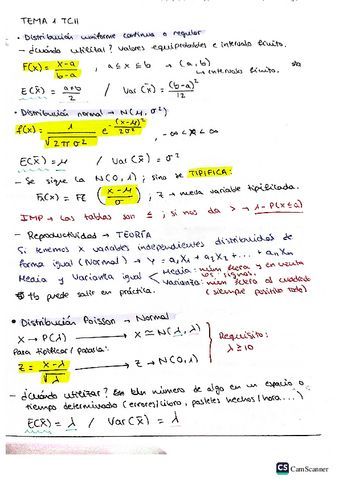 TEMA 1 TCII
• Distribución uniforme continua o regular
- ¿Cuándo utilizar? valores equiprobables e intervalo finito.
F(x) = x-a / b-a , a ≤ x ≤ b → (a, b)
↳ intervalo finito.
E(x̄) = a+b / 2 / Var(x̄) = (b-a)² / 12
• Distribución normal → N(μ, σ²)
f(x) = 1 / √2πσ² e^-(x-μ)² / 2σ² , -∞ < x < ∞
E(x̄) = μ / Var(x̄) = σ²
- Se sigue la N(0,1); sino se TIPIFICA:
Fx(x) = Fz (x-μ / σ) , z → nueva variable tipificada.
IMP → Las tablas son ≤ ; si nos da > → 1 - P(x ≤ a)
- Reproductividad → TEORÍA
Si tenemos X variables independientes distribuidas de
forma igual (Normal) → Y = a₁X₁ + a₂X₂ + ... + aₙXₙ
Media y Varianza igual < Media: núm fuera y en cuenta
los signos.
Varianza: núm fuera al cuadrado
(siempre positivo todo)
puede salir en práctica.
• Distribución Poisson → Normal
X → P(λ) → X ≃ N(λ, λ)
Requisito:
λ ≥ 10
Para tipificar / pasarla:
Z = x-λ / √λ → Z → N(0,1)
- ¿Cuándo utilizar? En un número de algo en un espacio o
tiempo determinado (errores/libro, pasteles hechos/hora...)
E(x̄) = λ / Var(x̄) = λ
CS CamScanner